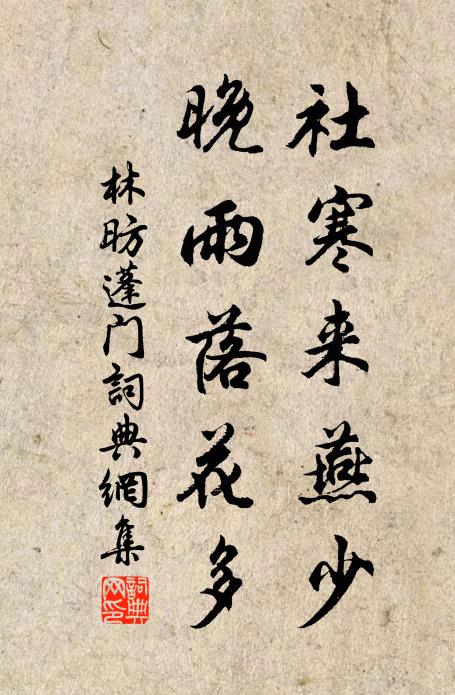 社寒来燕少
晚雨落花多
林昉蓬门詞典網集
詞典
网印